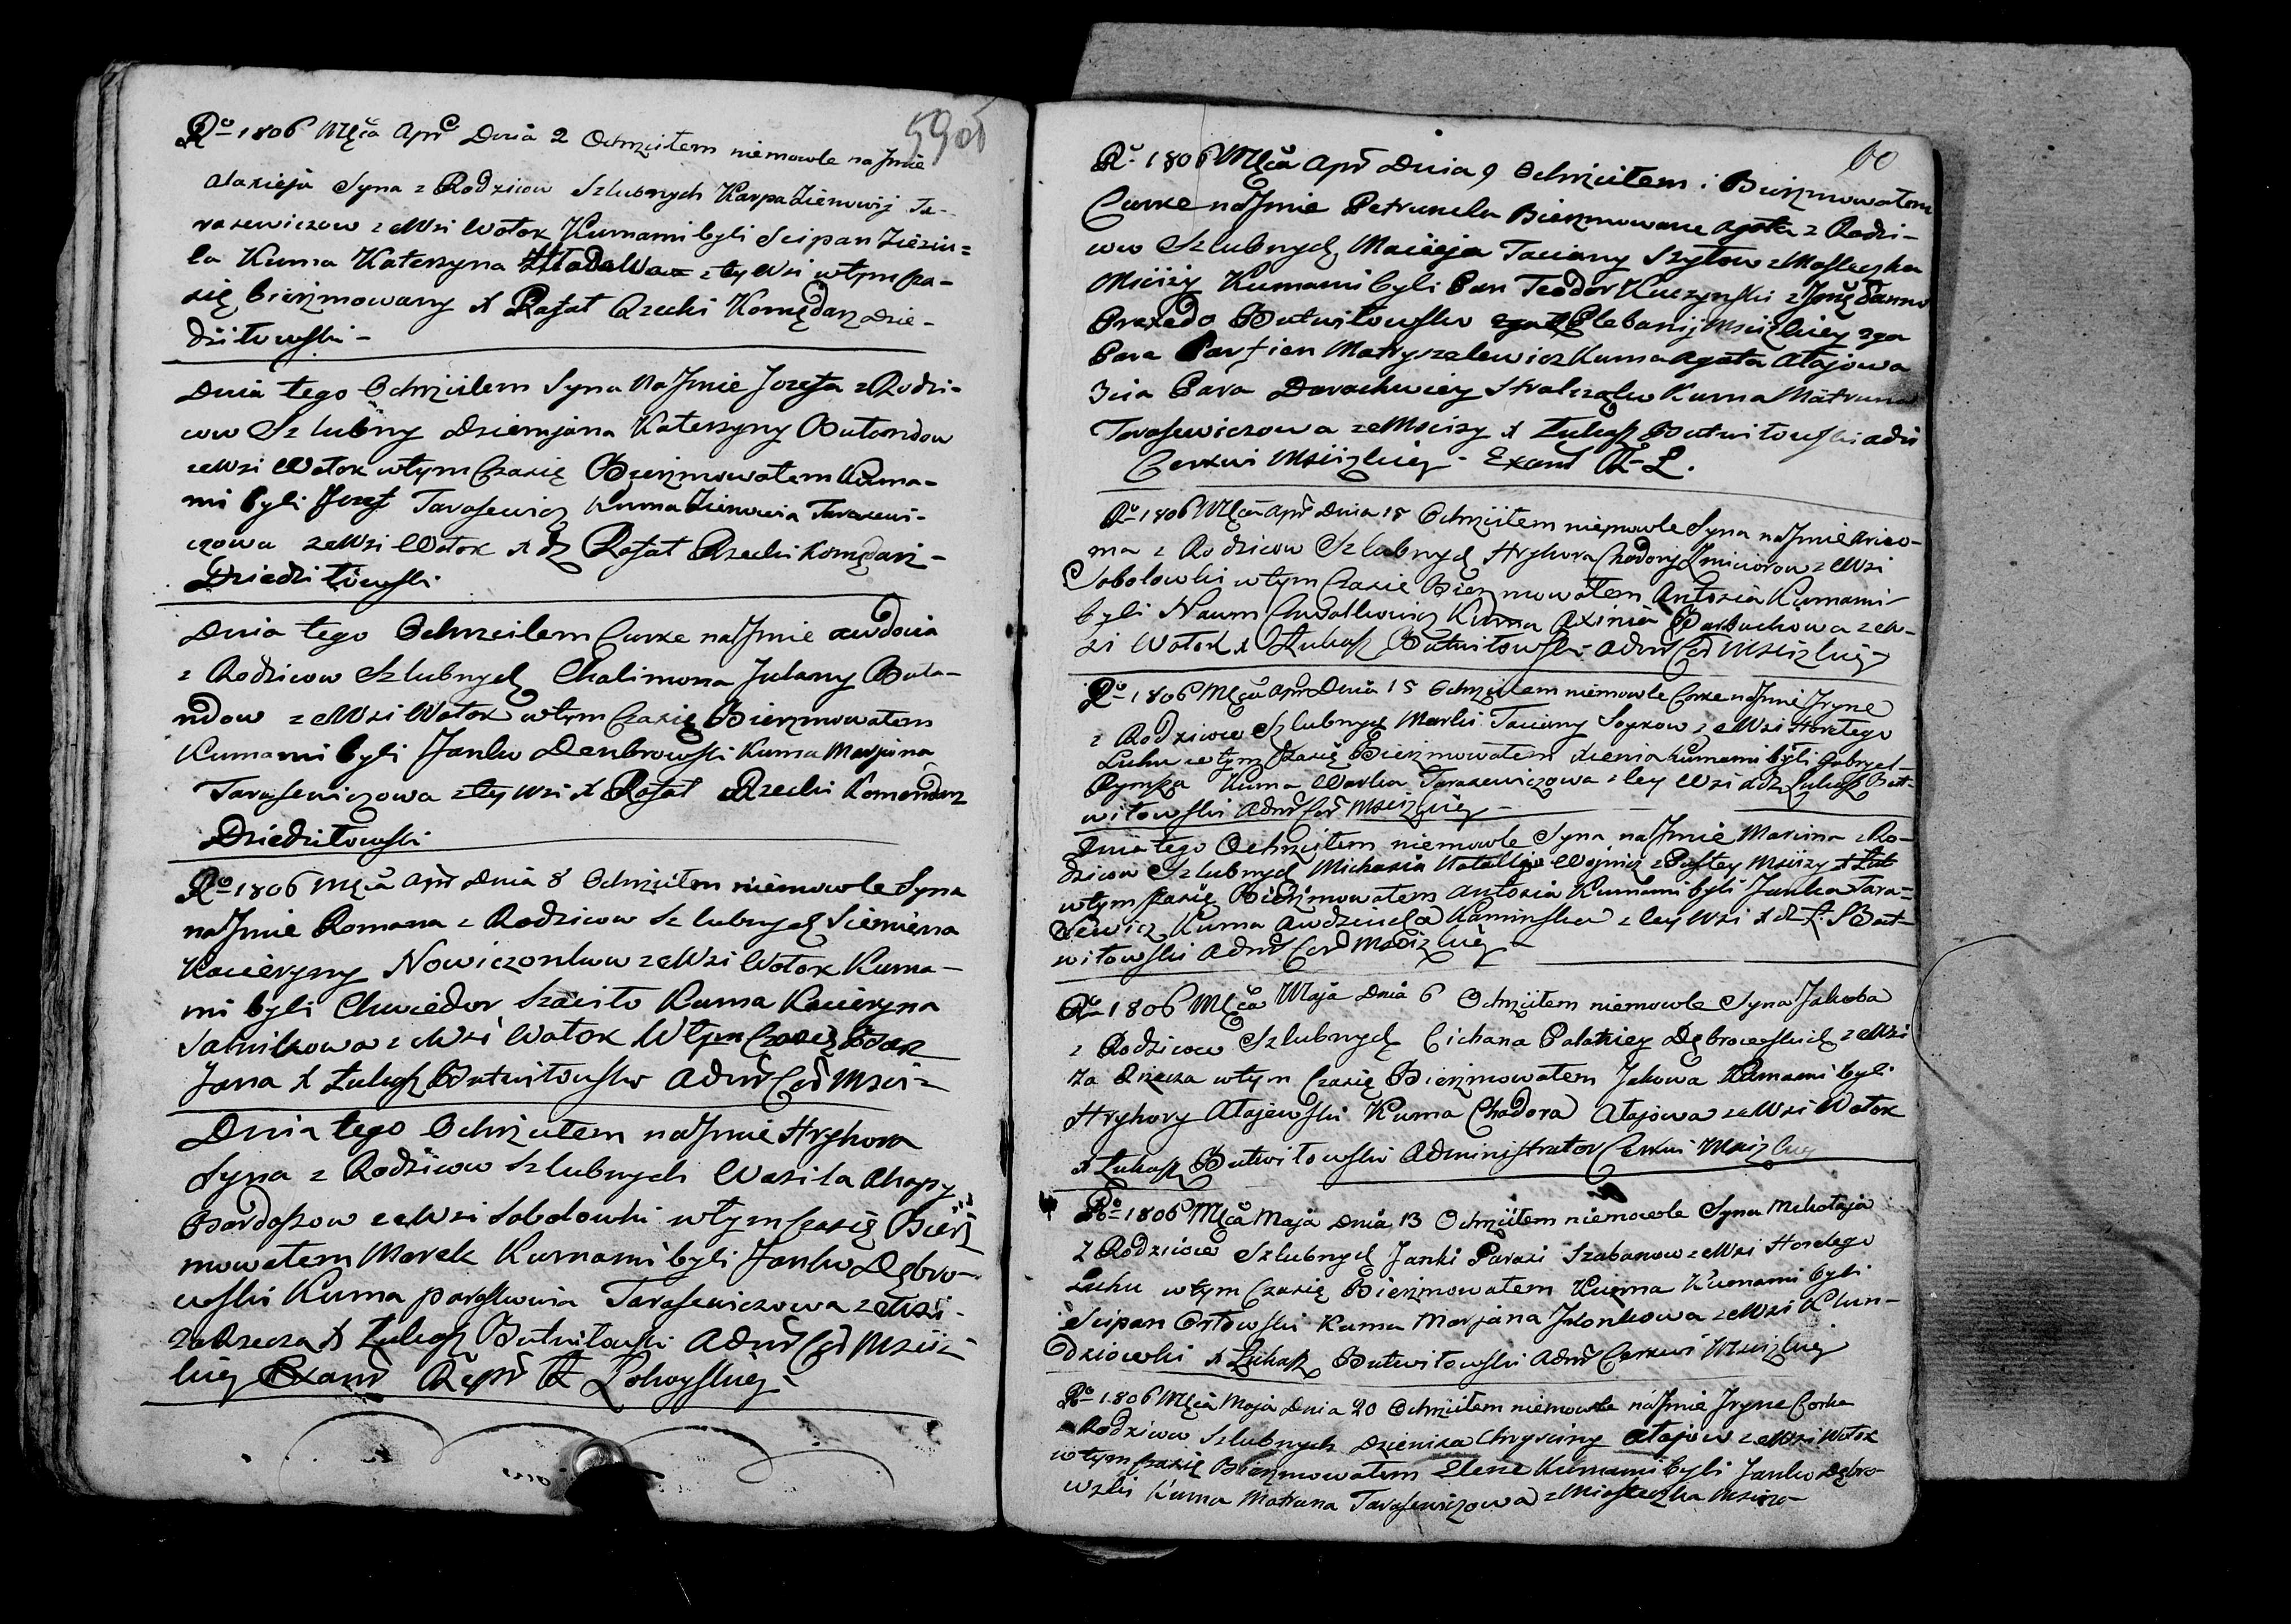 59 об
Rº 1806 Mca Apr Dnia 2 Ochrzciłem niemowle na Jmie
Alaxieja Syna z Rodzicow Szlubnych Karpa Zienowij Ta-
rasewiczow ze Wsi Wołok Kumami byli Scipan
la Kuma Katerzyna z tey Wsi w tym cza-
się bierzmowany X Rafał Rzecki Komędarz Dzie-
dziłowski -
Dnia tego Ochrzciłem Syna na Jmie Jozefa z Rodzi-
cow Szlubny Dziemjana Katerzyny Butandow
ze Wsi Wołok w tym Czasię Bierzmowałem Kuma-
mi byli Jozef Tarasewicz Kuma Zienowia Tarasewi-
czowa ze Wsi Wołok X dz Rafał Rzecki Komędarz -
Dziedziłowski
Dnia tego Ochrzciłem Curke na Jmie Awdocia
z Rodzicow Szlubnych Chalimona Julany Buta-
ndow ze Wsi Wołok w tym Czasię Bierzmowałem
Kumami byli Janko Denbrowski Kuma Marjana
Tarasewiczowa z tey Wsi X Rafał Rzecki Komendarz
Dziedziłowski
Rº 1806 Mca Apr Dnia 8 Ochrzciłem niemowle Syna
na Jmie Romana z Rodzicow Szlubnych Siemiena
Kacieryny Nowiczonkow ze Wsi Wołok Kuma-
mi byli Chwiedor Szaciło Kuma Kacieryna
Salnikowa ze Wsi Wołok W tym Czasię
Jana X Łukasz Butwiłowski Admr Cer Msci-
Dnia tego Ochrzciłem na Jmie Hryhora
Syna z Rodzicow Szlubnych Wasila Ahapy
Bardaszow ze Wsi Sobolowki w tym czasię Bierz
mowałem Marek Kumami byli Janko Dąbro-
wski Kuma paraskwia Tarasewiczowa ze Wsi
Zarzecza X Łukasz Butwiłowski Admr Cer Msciż
kiey Exam
60
Rº 1806 Mca Apr Dnia 9 Ochrzciłem i Bierzmowałem
Curke na Jmie Petrunela Bierzmowane Agata z Rodzi-
cow Szlubnych Macieja Taciany Szyłow z Mosteczka
Msciży Kumami byli Pan Teodor Kuczynski z Jmę Panno
Praxedo Butwiłowsko Plebanij Msciżkiey 2ga
Para Parfien Matyszelewicz Kuma Agata Ałajowa
3cia Para Strelczonko Kuma Matruna
Tarasewiczowa ze Msciży X Łukasz Butwiłowski adm
Cerkwi Msciżkiey - Exam R L.
Rº 1806 Mca Apr Dnia 15 Ochrzciłem niemowle Syna na Jmie
ma z Rodzicow Szlubnych Hryhora Chodory Zmiciorow ze Wsi
Sobolowki w tym Czasie Bierzmowałem Antosia Kumami
byli Naum Kuma Axinia Barbuchowa ze W-
si Wołok X Łukasz Butwiłowski Admr Cer Msciżkiey
Rº 1806 Mca Apr Dnia 15 Ochrzciłem niemowle Corke na Jmie Jryne
z Rodzicow Szlubnych Marki Taciany Soykow ze Wsi Horełego
Luhu w tym Czasię Bierzmowałem Xienia Kumami byli Gabryel
Rymsza Kuma Warka Tarasewiczowa z tey Wsi X dz Łukasz But-
wiłowski Admr Cer Msciżkiey
Dnia tego Ochrzciłem niemowle Syna na Jmie Marcina z Ro-
dzicow Szlubnych Michasia Natallij Woynicz z Pustey Msciży
w tym Czasię Bierzmowałem Antosia Kumami byli Janka Tara-
sewicz Kuma Awdziucha Kaminska z tey Wsi X dz Ł But-
wiłowski Admr Cer Msciżkiey
Rº 1806 Mca Maja Dnia 6 Ochrzciłem niemowle Syna Jakoba
z Rodzicow Szlubnych Cichana Palahiey Dąbrowskich ze Wsi
Za Rzecza w tym Czasię Bierzmowałem Jakowa Kumami byli
Hryhory Ałajewski Kuma Chadora Ałajowa ze Wsi Wołok
X Łukasz Butwiłowski Administrator Cerkwi Msciżkiey
Rº 1806 Mca Maja Dnia 13 Ochrzciłem niemowle Syna Mikołaja
z Rodzicow Szlubnych Janki Parasi Szabanow ze Wsi Horełego
Luhu w tym Czasię Bierzmowałem Kumami byli
Scipan Orłowski Kuma Marjana Jkonkowa ze Wsi Klun-
dziowki X Łukasz Butwiłowski Admr Cerkwi Msciżkiey
Rº 1806 Mca Maja Dnia 20 Ochrzciłem niemowle na Jmie Jryne Corke
z Rodzicow Szlubnych Dzienisa Chryściny Ałajow ze Wsi Wołok
w tym Czasię Bierzmowałem Elene Kumami byli Janko Dąbro-
wski Kuma Matruna Tarasewiczowa z Miasteczka